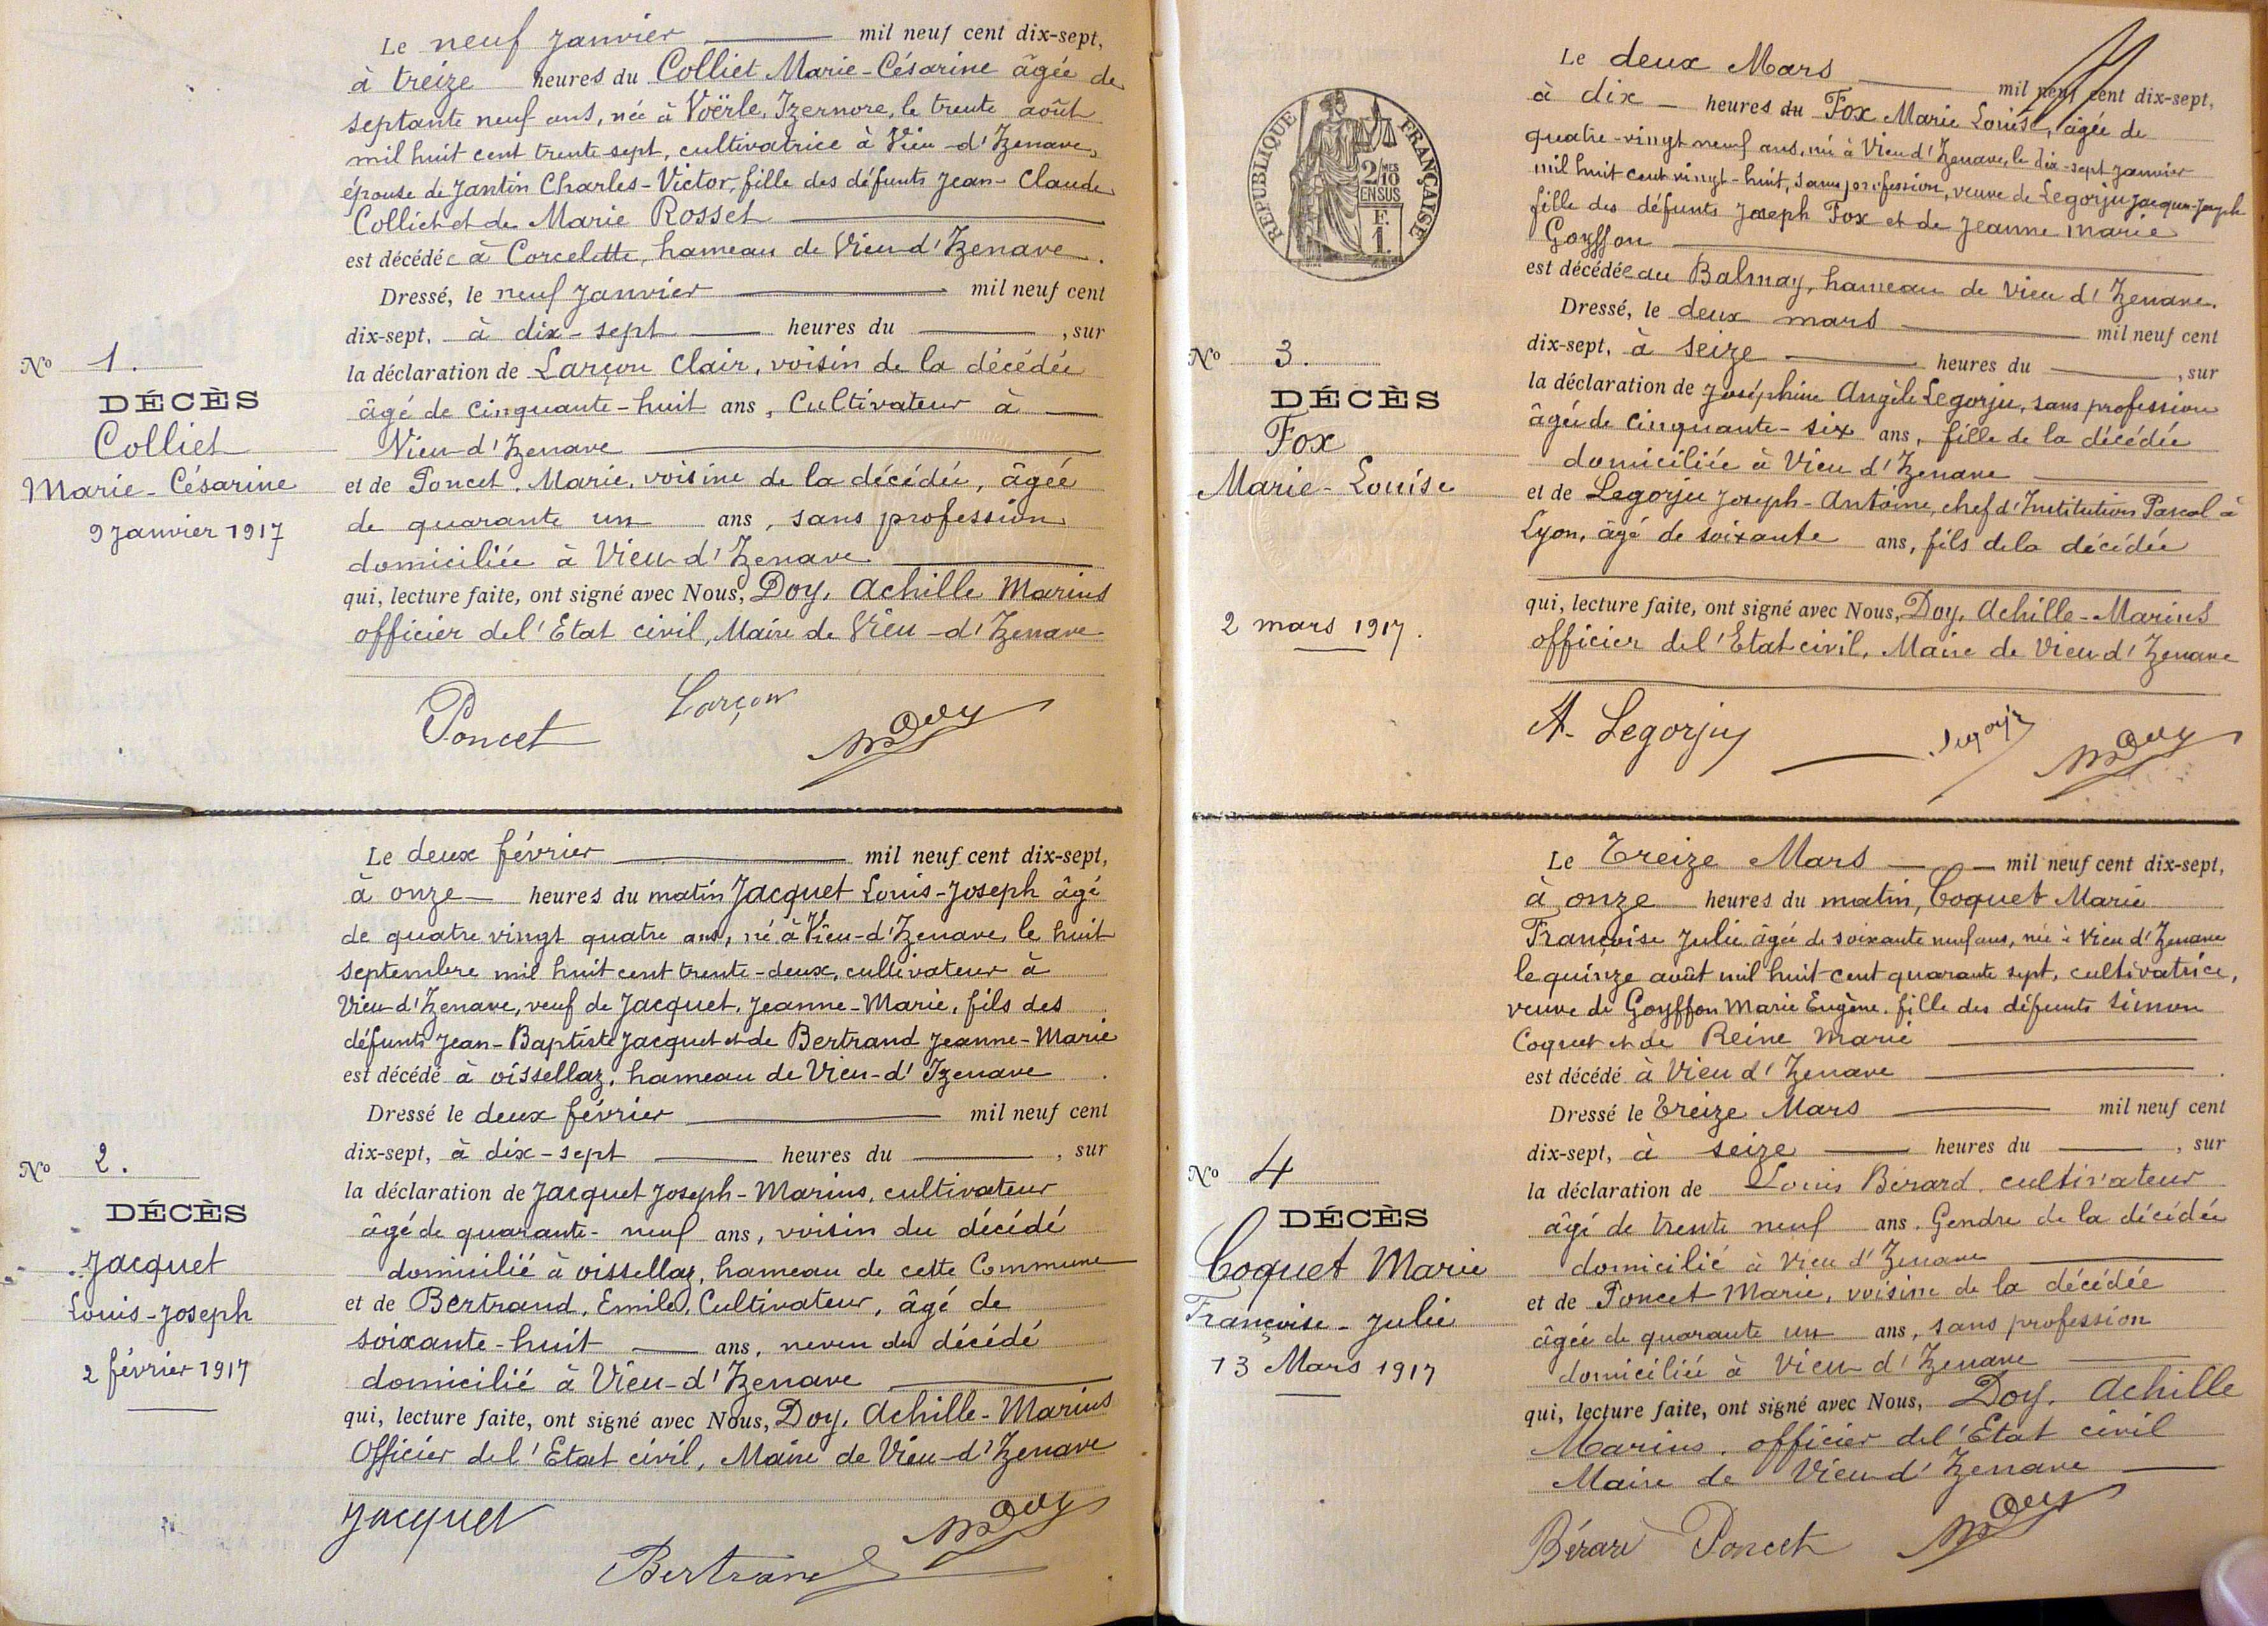 Le neuf Janvier mil neuf cent dix-sept,
à treize heures du Colliet Marie-Césarine âgée de
septante neuf ans, née à Voërle, Izernore, le trente août
mil huit cent trente-sept, cultivatrice à Vieu-d'Izenave,
épouse de Jantin Charles-Victor, fille des défunts Jean-Claude
Colliet et de Marie Rosset
est décédée à Corcelette, hameau de Vieu d'Izenave.
Dressé, le neuf Janvier mil neuf cent
dix-sept, à dix-sept heures du , sur
la déclaration de Larçon Clair, voisin de la décédée
âgé de cinquante-huit ans, Cultivateur à
Vieu-d'Izenave
et de Poncet, Marie, voisine de la décédée, âgée
de quarante un ans, sans profession
domiciliée à Vieu d'Izenave
qui, lecture faite, ont signé avec Nous, Doy, Achille Marius
officier de l'Etat civil, Maire de Vieu-d'Izenave
Poncet Larçon Doy
No 1.
DÉCÈS
Colliet
Marie-Césarine
9 Janvier 1917
Le deux février mil neuf cent dix-sept,
à onze heures du matin Jacquet Louis-Joseph âgé
de quatre vingt quatre ans, né à Vieu-d'Izenave, le huit
septembre mil huit cent trente-deux, cultivateur à
Vieu-d'Izenave, veuf de Jacquet, Jeanne-Marie, fils des
défunts Jean-Baptiste Jacquet et de Bertrand Jeanne-Marie
est décédé à oissellaz, hameau de Vieu-d'Izenave.
Dressé le deux février mil neuf cent
dix-sept, à dix-sept heures du , sur
la déclaration de Jacquet Joseph-Marius, cultivateur
âgé de quarante-neuf ans, voisin du décédé
domicilié à oissellaz, hameau de cette Commune
et de Bertrand, Emile, Cultivateur, âgé de
soixante-huit ans, neveu du décédé
domicilié à Vieu-d'Izenave
qui, lecture faite, ont signé avec Nous, Doy, Achille-Marius
Officier de l'Etat civil, Maire de Vieu-d'Izenave
Jacquet Bertrand Doy
No 2.
DÉCÈS
Jacquet
Louis-Joseph
2 février 1917
Le deux Mars mil neuf cent dix-sept,
à dix heures du Fox Marie Louise, âgée de
quatre-vingt neuf ans, née à Vieu d'Izenave, le dix-sept janvier
mil huit cent vingt-huit, sans profession, veuve de Legorju Jacques-Joseph
fille des défunts Joseph Fox et de Jeanne Marie
Goyffon
est décédée au Balmay, hameau de Vieu d'Izenave.
Dressé, le deux mars mil neuf cent
dix-sept, à seize heures du , sur
la déclaration de Joséphine Angèle Legorju, sans profession
âgée de cinquante-six ans, fille de la décédée
domiciliée à Vieu d'Izenave
et de Legorju Joseph-Antoine, chef d'Institution Pascal à
Lyon, âgé de soixante ans, fils de la décédée
qui, lecture faite, ont signé avec Nous, Doy, Achille-Marius
officier de l'Etat civil, Maire de Vieu d'Izenave
A. Legorju Legorju Doy
RÉPUBLIQUE FRANÇAISE
2/10
MES
EN SUS
F.
1.
No 3.
DÉCÈS
Fox
Marie-Louise
2 mars 1917.
Le Treize Mars mil neuf cent dix-sept,
à onze heures du matin, Coquet Marie
Françoise Julie âgée de soixante neuf ans, née à Vieu d'Izenave
le quinze août mil huit-cent quarante sept, cultivatrice,
veuve de Goyffon Marie Eugène, fille des défunts Simon
Coquet et de Reine Marie
est décédé à Vieu d'Izenave.
Dressé le Treize Mars mil neuf cent
dix-sept, à seize heures du , sur
la déclaration de Louis Bérard, cultivateur
âgé de trente neuf ans. Gendre de la décédée
domicilié à Vieu d'Izenave
et de Poncet Marie, voisine de la décédée
âgée de quarante un ans, sans profession
domiciliée à Vieu d'Izenave
qui, lecture faite, ont signé avec Nous, Doy, Achille
Marius, officier de l'Etat civil
Maire de Vieu d'Izenave
Bérard Poncet Doy
No 4
DÉCÈS
Coquet Marie
Françoise-Julie
13 Mars 1917